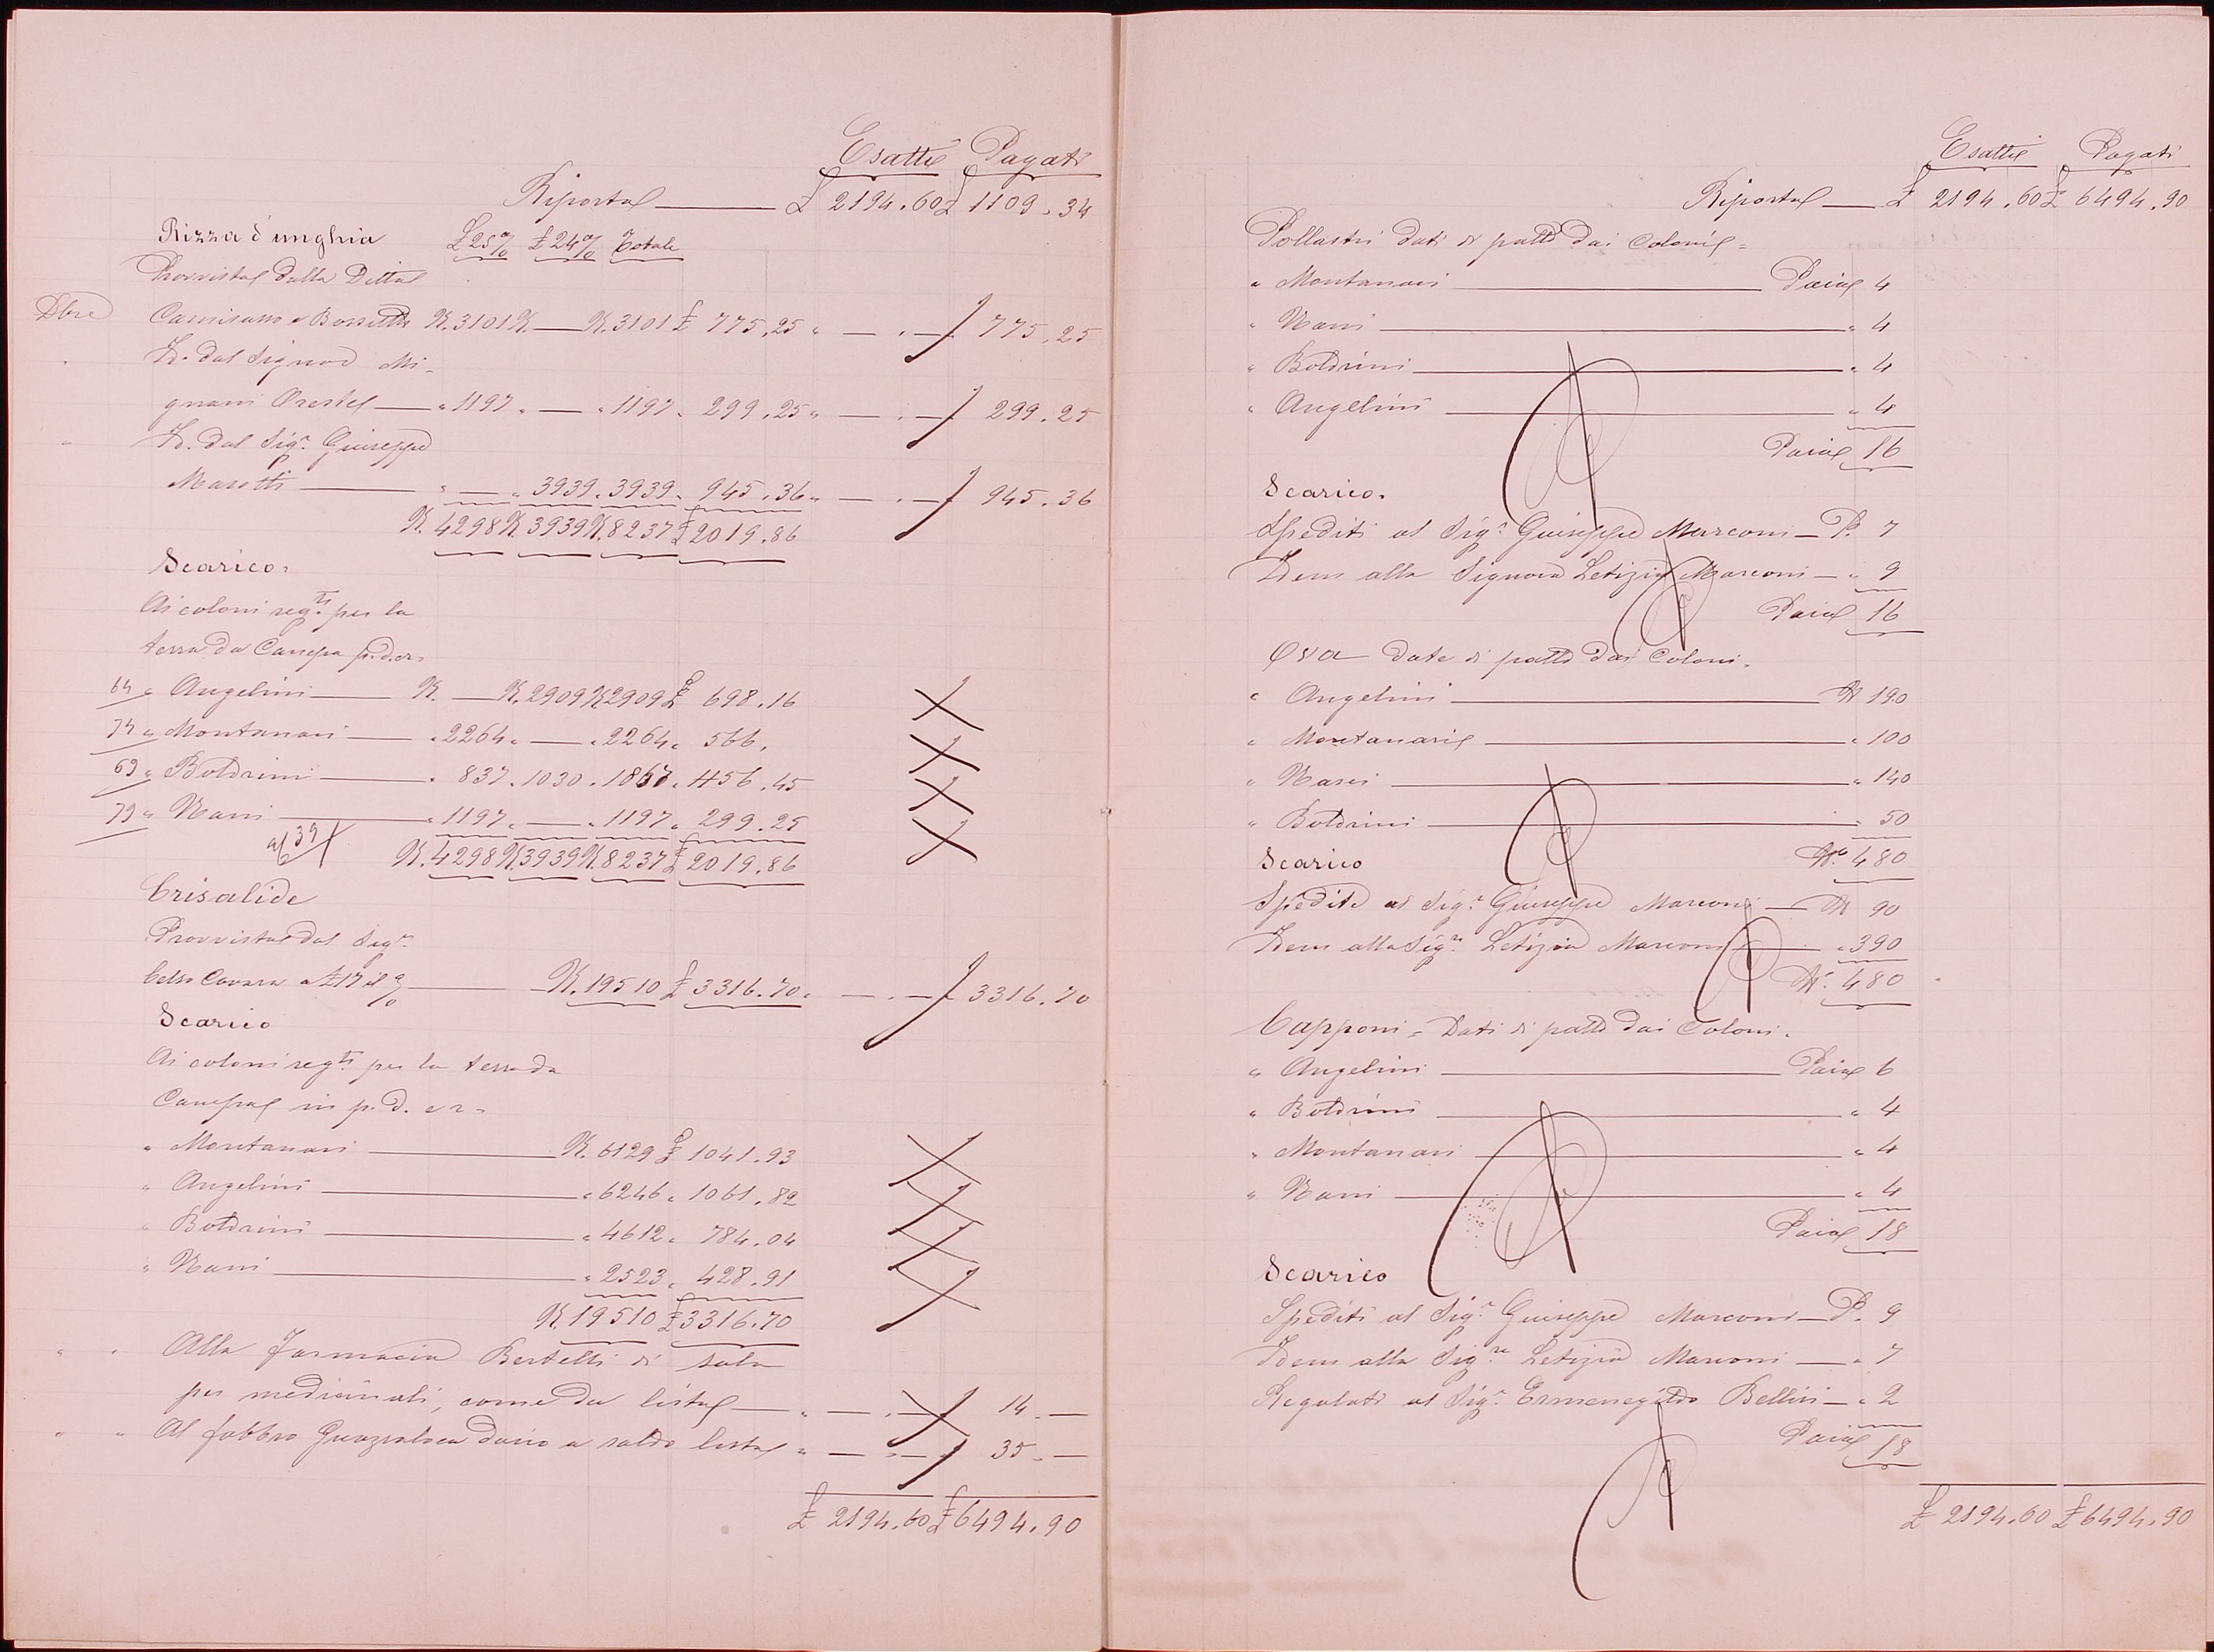 Esatti Pagati
Riporta £ 2194.60 £ 1109.34
Rizza d'unghia £25% £24% Totale
Provvista dalla Ditta
Dbre Camisasso e Bossetti K.3101 K. — K.3101 £ 775,25 " — . — 775,25
Id. dal Signor Mi-
gnani Oreste — " 1197 " — " 1197 " 299,25 " — . — 299.25
" Id. dal Sigr. Giuseppe
Marotti — " — " 3939 " 3939 " 945.36 " — . — 945.36
K.4298 K.3939 K.8237 £2019.86
Scarico.
Ai coloni regti per la
terra da Canepa p.d.er.
64 " Angelini — K. — K.2909 K.2909 £ 698.16
74 " Montanari — " 2264 " — " 2264 " 566.
69 " Boldrini — " 837 " 1030 " 1867 " 456.45
79 " Nanni — " 1197 " — " 1197 " 299.25
K.4298 K.3939 K.8237 £2019.86
Crisalide
Provvista dal Sigr.
Celso Cavara a £17 il % — K.19510 £ 3316.70 " — . — 3316.70
Scarico
Ai coloni regti per la terra da
Canepa in p.d. e r.
" Montanari — K.6129 £ 1041.93
" Angelini — " 6246 " 1061.82
" Boldrini — " 4612 " 784.04
" Nanni — " 2523 " 428.91
K.19510 £3316.70
" " Alla Farmacia Bertelli di Sala
per medicinali, come da lista — " — . — 14 . —
" " Al fabbro Guazzaloca Dario a saldo lista " — . — 35 . —
£ 2194.60 £ 6494.90
Esatti Pagati
Riporta — £ 2194.60 £ 6494.90
Pollastri dati di patto dai coloni =
" Montanari — Paia 4
" Nanni — " 4
" Boldrini — " 4
" Angelini — " 4
Paia 16
Scarico.
Spediti al Sigr. Giuseppe Marconi — P. 7
Idem alla Signora Letizia Marconi — " 9
Paia 16
Ova date di patto dai Coloni.
" Angelini — N 190
" Montanari — " 100
" Nanni — " 140
" Boldrini — " 50
Scarico No. 480
Spedite al Sigr. Giuseppe Marconi — N 90
Idem alla Sigra. Letizia Marconi — " 390
No. 480
Capponi = Dati di patto dai Coloni.
" Angelini — Paia 6
" Boldrini — " 4
" Montanari — " 4
" Nanni — " 4
Paia 18
Scarico
Spediti al Sigr. Giuseppe Marconi — P. 9
Idem alla Sigra. Letizia Marconi — " 7
Regalati al Sigr. Ermenegildo Bellini — " 2
Paia 18
£ 2194.60 £ 6494.90